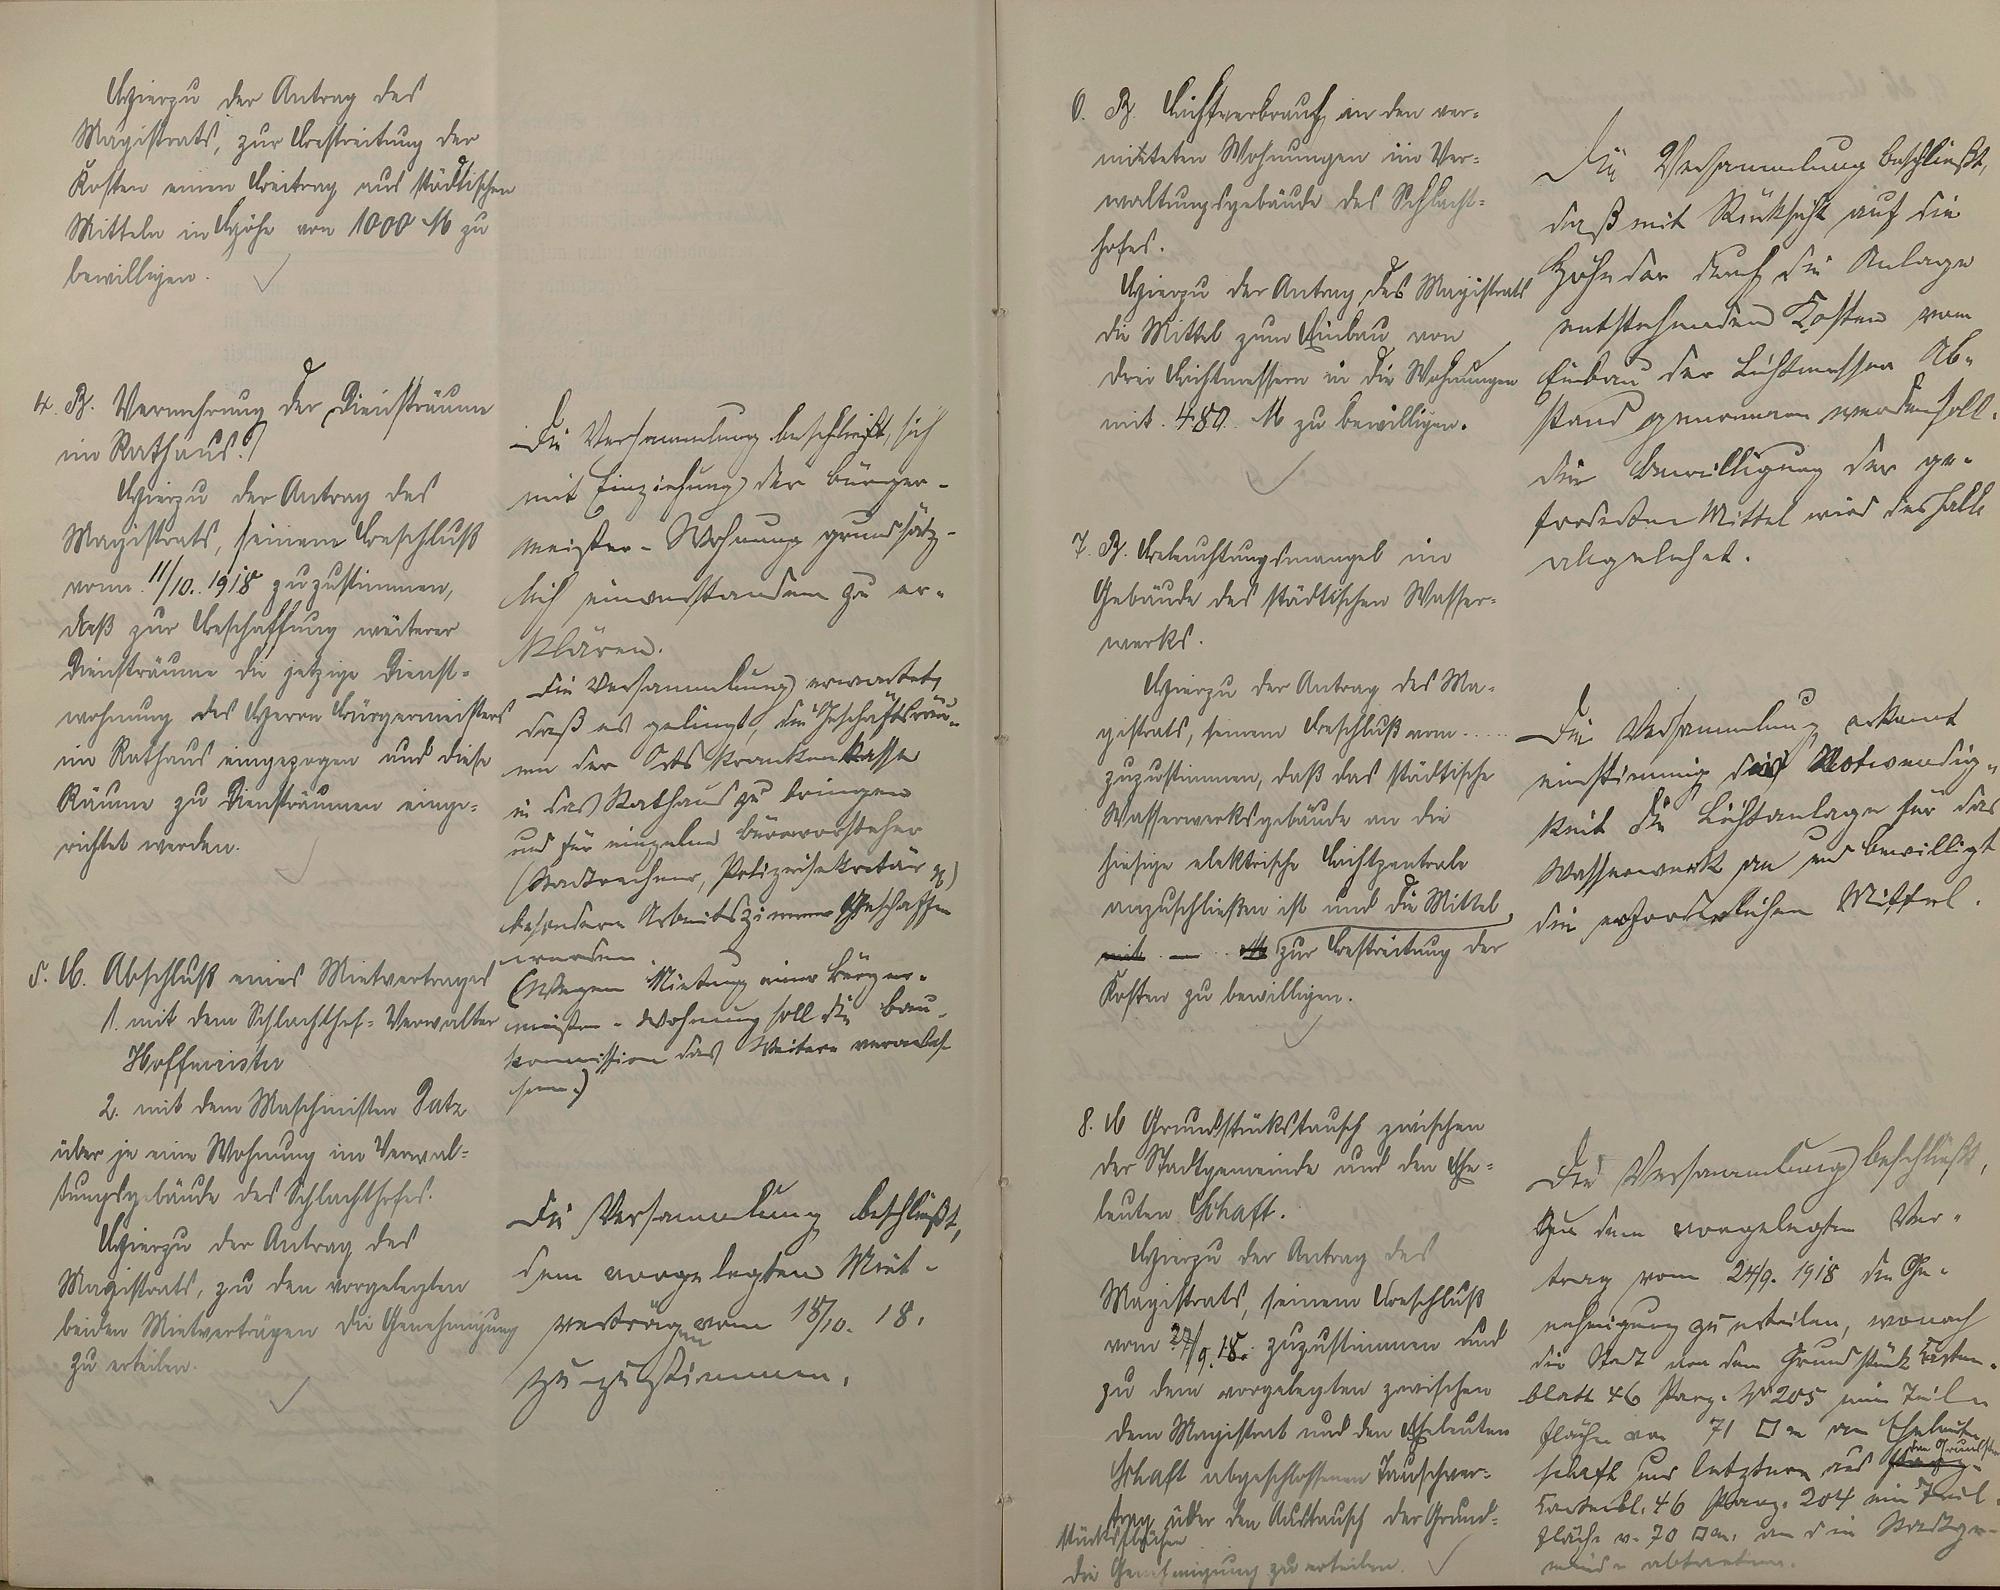 Hierzu der Antrag des
Magistrats, zur Bestreitung der
Kosten einen Beitrag aus städtischen
Mitteln in Höhe von 1000 M zu
bewilligen.
4. B. Vermehrung der Diensträume
im Rathaus.
Hierzu der Antrag des
Magistrats, seinem Beschluß
vom 11/10. 1918 zuzustimmen,
daß zur Beschaffung weiterer
Diensträume die jetzige Dienst-
wohnung des Herrn Bürgermeisters
im Rathaus eingezogen und diese
Räume zu Diensträumen einge-
richtet werden.
5. B. Abschluß eines Mietvertrages
1. mit dem Schlachthof-Verwalter
Hoffmeister
2. mit dem Maschinisten Patz
über je eine Wohnung im Verwal-
tungsgebäude des Schlachthofes.
Hierzu der Antrag des
Magistrats, zu den vorgelegten
beiden Mietverträgen die Genehmigung
zu erteilen.
Die Versammlung beschließt, sich
mit Einziehung der Bürger-
meister-Wohnung grundsätz-
lich einverstanden zu er-
klären.
Die Versammlung erwartet,
daß es gelingt, die Geschäftsräu-
me der Ortskrankenkasse
in das Rathaus zu bringen
und für einzelne Bürovorsteher
(Stadtrechner, Polizeisekretär pp)
besondere Arbeitszimmer geschaffen
werden.
(Wegen Mietung einer Bürger-
meister-Wohnung soll die Bau-
kommission das Weitere veranlas-
sen.)
Die Versammlung beschließt,
dem vorgelegten Miet-
verträgen vom 18/10. 18.
zuzustimmen.
6. B. Lichtverbrauch in den ver-
mieteten Wohnungen im Ver-
waltungsgebäude des Schlacht-
hofes.
Hierzu der Antrag des Magistrats
die Mittel zum Einbau von
drei Lichtmessern in die Wohnungen
mit 480 M zu bewilligen.
7. B. Beleuchtungsmangel im
Gebäude des städtischen Wasser-
werks.
Hierzu der Antrag des Ma-
gistrats, seinem Beschluß vom .....
zuzustimmen, daß das städtische
Wasserwerksgebäude an die
hiesige elektrische Lichtzentrale
anzuschließen ist und die Mittel
mit — M zur Bestreitung der
Kosten zu bewilligen.
8. B Grundstückstausch zwischen
der Stadtgemeinde und den Ehe-
leuten Schaft.
Hierzu der Antrag des
Magistrats, seinem Beschluß
vom 27/9. 18. zuzustimmen und
zu dem vorgelegten zwischen
dem Magistrat und den Eheleuten
Schaft abgeschlossenen Tauschver-
trag über den Austausch der Grund-
stücksflächen
die Genehmigung zu erteilen.
Die Versammlung beschließt,
daß mit Rücksicht auf die
Höhe der durch die Anlage
entstehenden Kosten vom
Einbau der Lichtmesser Ab-
stand genommen werden soll.
Die Bewilligung der ge-
forderten Mittel wird deshalb
abgelehnt.
Die Versammlung erkennt
einstimmig die Notwendig-
keit die Lichtanlage für das
Wasserwerk an und bewilligt
die erforderlichen Mittel.
Die Versammlung beschließt,
zu dem vorgelegten Ver-
trag vom 24/9. 1918 die Ge-
nehmigung zu erteilen, wonach
die Stadt von dem Grundstück Karten-
blatt 46 Parz. No 205 eine Teil-
fläche von 71 □m an Eheleute
Schaft und letztere aus dem Grundstück
Kartenbl. 46 Parz. 204 eine Teil-
fläche v. 70 □m. an die Stadtge-
meinde abtreten.